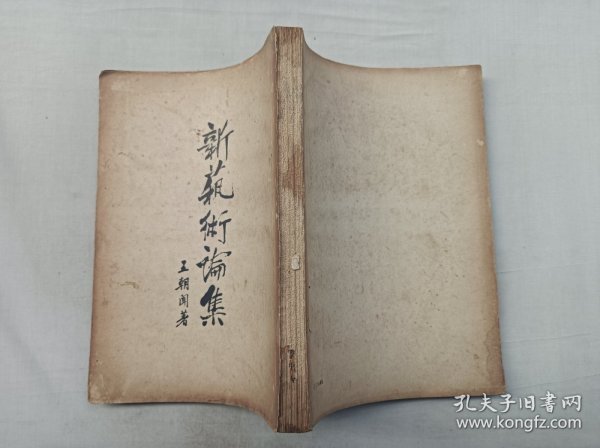 新藝術論集
王朝聞著
孔夫子旧书网
www.kongfz.com